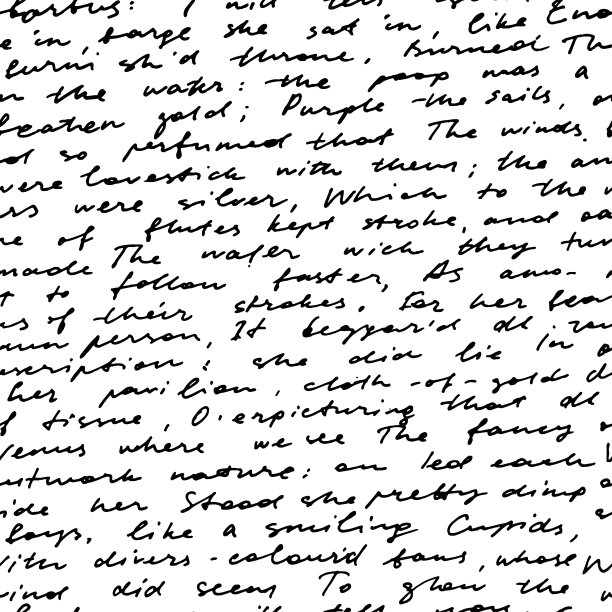 I will tell
e in, barge she sat in, like
burni sh'd throne, Burned Th
n the water: the poop was a
beaten gold; Purple the sails,
d so perfumed that The winds.
were lovesick with them; the
rs were silver, Which to the
ne of flutes kept stroke, and
made The water wich they
to follow faster, As amo-
us of their strokes. For her
own person, It beggar'd all
escription: she did lie in
her pavilion, cloth-of-gold
f tissue, O'erpicturing that all
Venus where we see The fancy
utwork nature: on led each
ide her Stood she pretty dimp
boys, like a smiling Cupids,
With divers-colour'd fans, whose
wind did seem To glow the